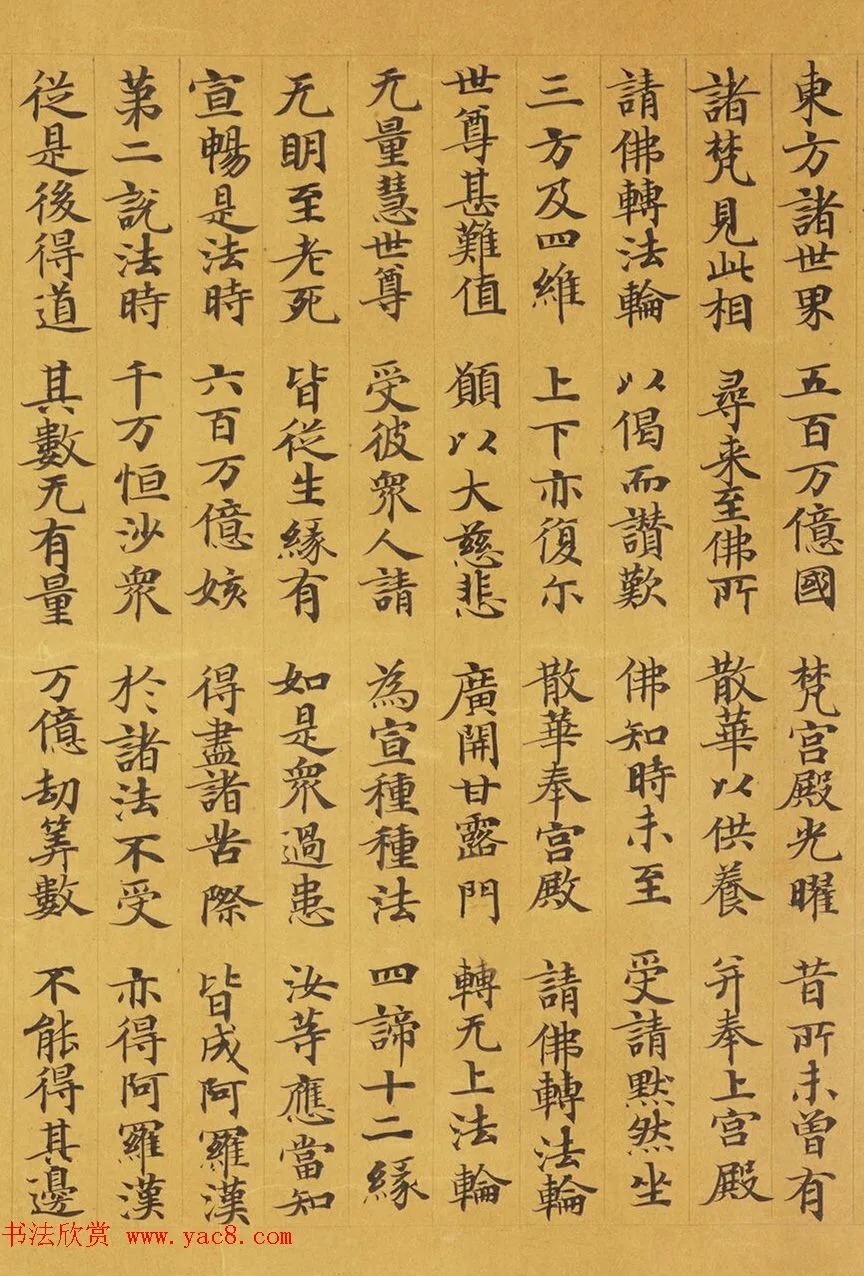 東方諸世界 五百万億國 梵宮殿光曜 昔所未曾有
諸梵見此相 尋来至佛所 散華以供養 并奉上宮殿
請佛轉法輪 以偈而讃歎 佛知時未至 受請默然坐
三方及四維 上下亦復尔 散華奉宮殿 請佛轉法輪
世尊甚難值 願以大慈悲 廣開甘露門 轉无上法輪
无量慧世尊 受彼衆人請 為宣種種法 四諦十二緣
无明至老死 皆從生緣有 如是衆過患 汝等應當知
宣暢是法時 六百万億姟 得盡諸苦際 皆成阿羅漢
第二說法時 千万恒沙衆 於諸法不受 亦得阿羅漢
從是後得道 其數无有量 万億劫筭數 不能得其邊
书法欣赏 www.yac8.com